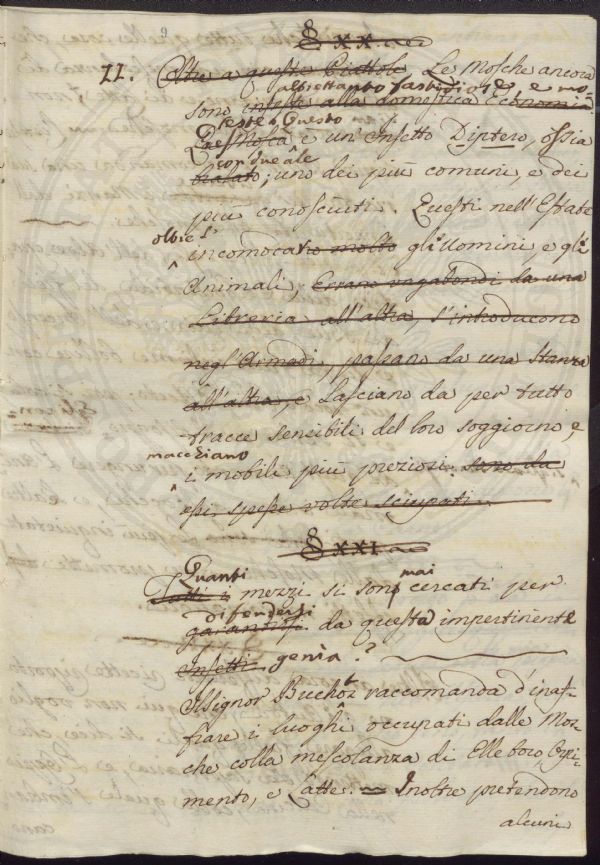 § XX.
II. Oltre a queste Piattole Le Mosche ancora
altrettanto fastidiose, e no-
sono infeste alla domestica Economia
teste. Questo
La Mosca è un' Insetto Diptero, ossia
con due ale
bialato; uno dei più comuni, e dei
più conosciuti. Questi nell'Estate
oltre l'
incomodano molto gli Uomini, e gli
Animali, Errano vagabondi da una
Libreria all'altra, s'introducono
negl'Armadi, passano da una stanza
all'altra, e Lasciano da per tutto
tracce sensibili del loro soggiorno, e
macchiano
i mobili più preziosi sono da
essi spesse volte sciupati.
§ XXI.
Quanti mai
Tutti i mezzi si sono cercati per
difendersi
garantirsi da questa impertinente
Insetti genìa?
Il signor Buchoz raccomanda d'inaf-
fiare i luoghi occupati dalle Mos-
che colla mescolanza di Elleboro, Orpi-
mento, e Latte. = Inoltre pretendono
alcuni